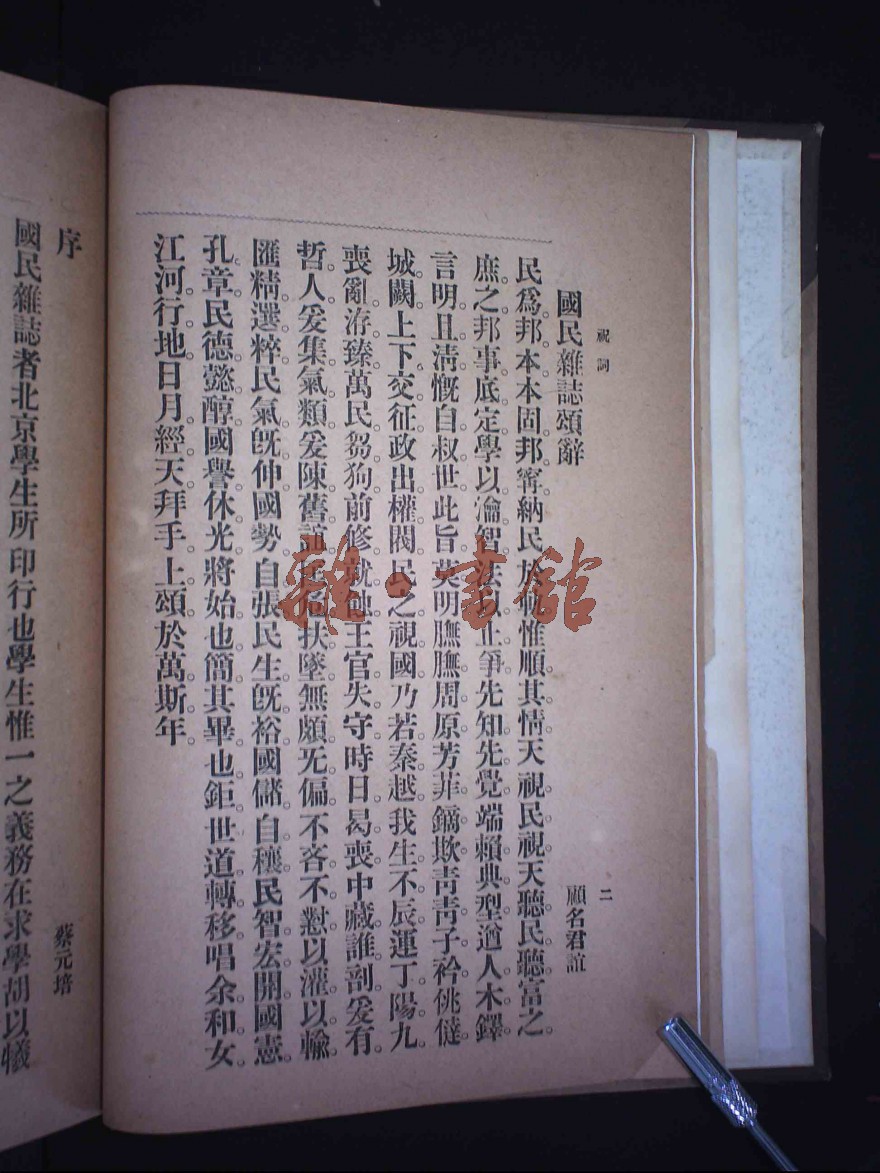 祝詞 二
國民雜誌頌辭 顧名君誼
民爲邦本。本固邦甯。納民於軌。惟順其情。天視民視。天聽民聽。富之
庶之。邦事底定。學以瀹智。法以止爭。先知先覺。端賴典型。遒人木鐸。
言明且淸。慨自叔世。此旨莫明。膴膴周原。芳菲鏑欺。靑靑子衿。佻㒓
城闕。上下交征。政出權閥。民之視國。乃若秦越。我生不辰。運丁陽九。
喪亂洊臻。萬民芻狗。前修就蝕。王官失守。時日曷喪。中藏誰剖。爰有
哲人。爰集氣類。爰陳舊誼。扶墜。無頗旡偏。不吝不懟。以灌以輸。
匯精選粹。民氣旣伸。國勢自張。民生旣裕。國儲自穰。民智宏開。國憲
孔章。民德懿醇。國譽休光。將始也簡。其畢也鉅。世道轉移。唱余和女。
江河行地。日月經天。拜手上頌。於萬斯年。
序 蔡元培
國民雜誌者北京學生所印行也學生惟一之義務在求學胡以犧
雜·書館